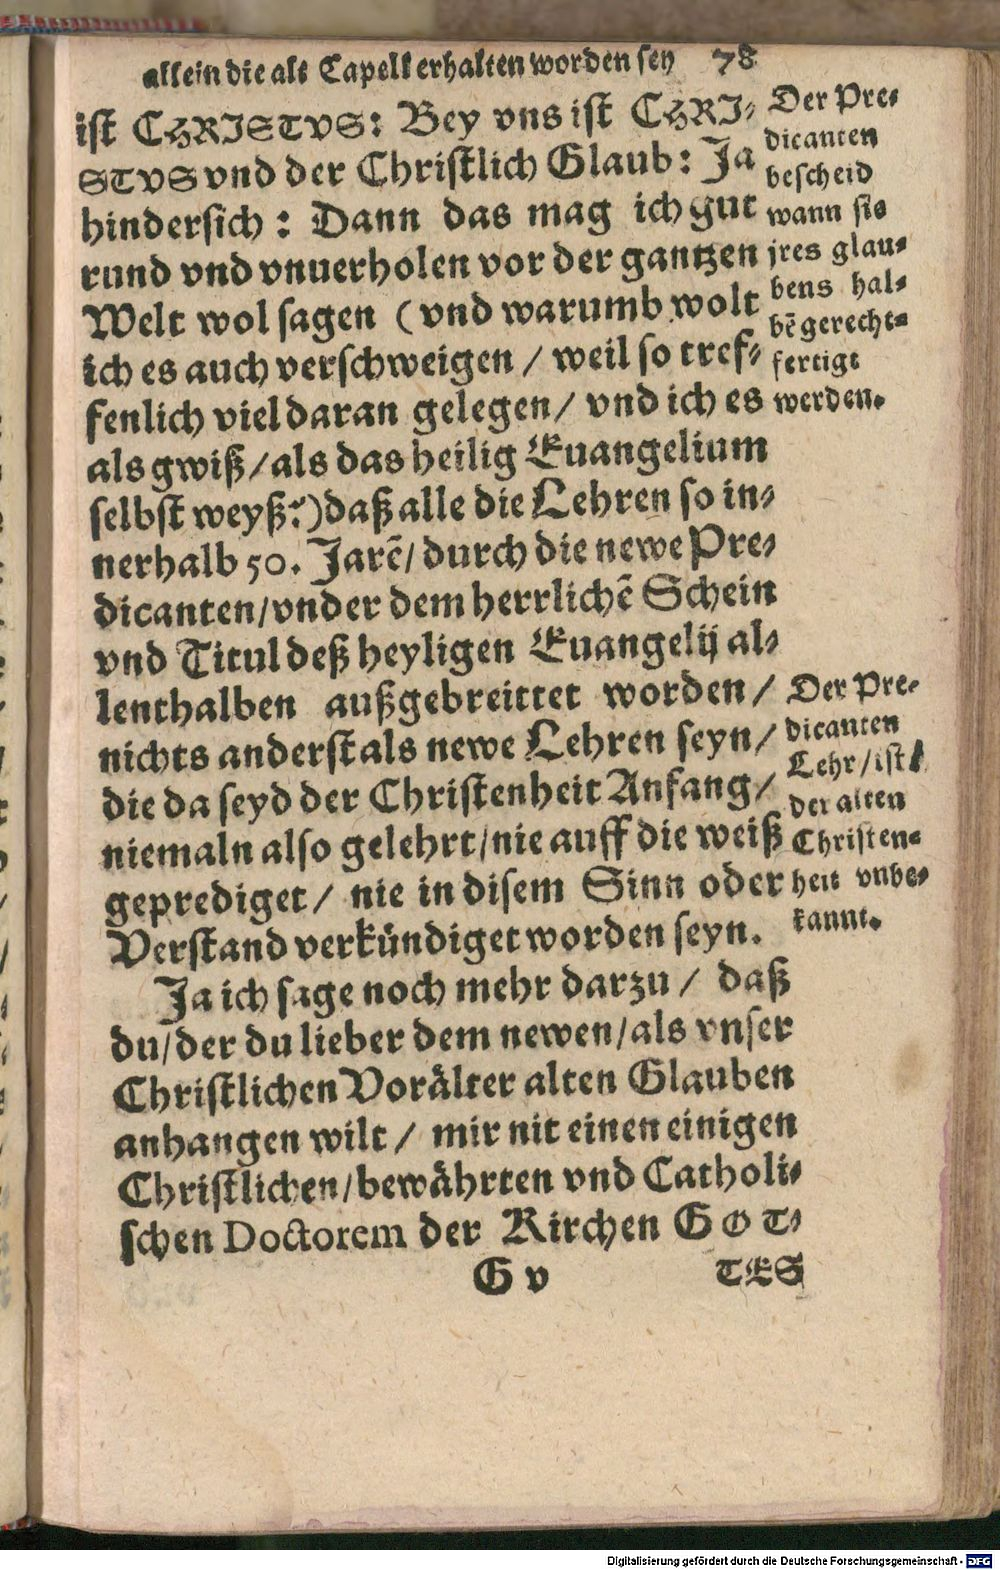 allein die alt Capell erhalten worden sey 78
ist CHRISTVS: Bey vns ist CHRI-
STVS vnd der Christlich Glaub: Ja
hindersich: Dann das mag ich gut
rund vnd vnuerholen vor der gantzen
Welt wol sagen (vnd warumb wolt
ich es auch verschweigen / weil so tref-
fenlich viel daran gelegen / vnd ich es
als gwiß / als das heilig Euangelium
selbst weyß?) daß alle die Lehren so in-
nerhalb 50. Jarẽ / durch die newe Pre-
dicanten / vnder dem herrlichẽ Schein
vnd Titul deß heyligen Euangelij al-
lenthalben außgebreittet worden /
nichts anderst als newe Lehren seyn /
die da seyd der Christenheit Anfang /
niemaln also gelehrt / nie auff die weiß
geprediget / nie in disem Sinn oder
Verstand verkündiget worden seyn.
Ja ich sage noch mehr darzu / daß
du / der du lieber dem newen / als vnser
Christlichen Vorälter alten Glauben
anhangen wilt / mir nit einen einigen
Christlichen / bewährten vnd Catholi-
schen Doctorem der Kirchen GOT-
G v TES
Der Pre-
dicanten
bescheid
wann sie
jres glau-
bens hal-
bẽ gerecht-
fertigt
werden.
Der Pre-
dicanten
Lehr / ist
der alten
Christen-
heit vnbe-
kannt.
Digitalisierung gefördert durch die Deutsche Forschungsgemeinschaft - DFG